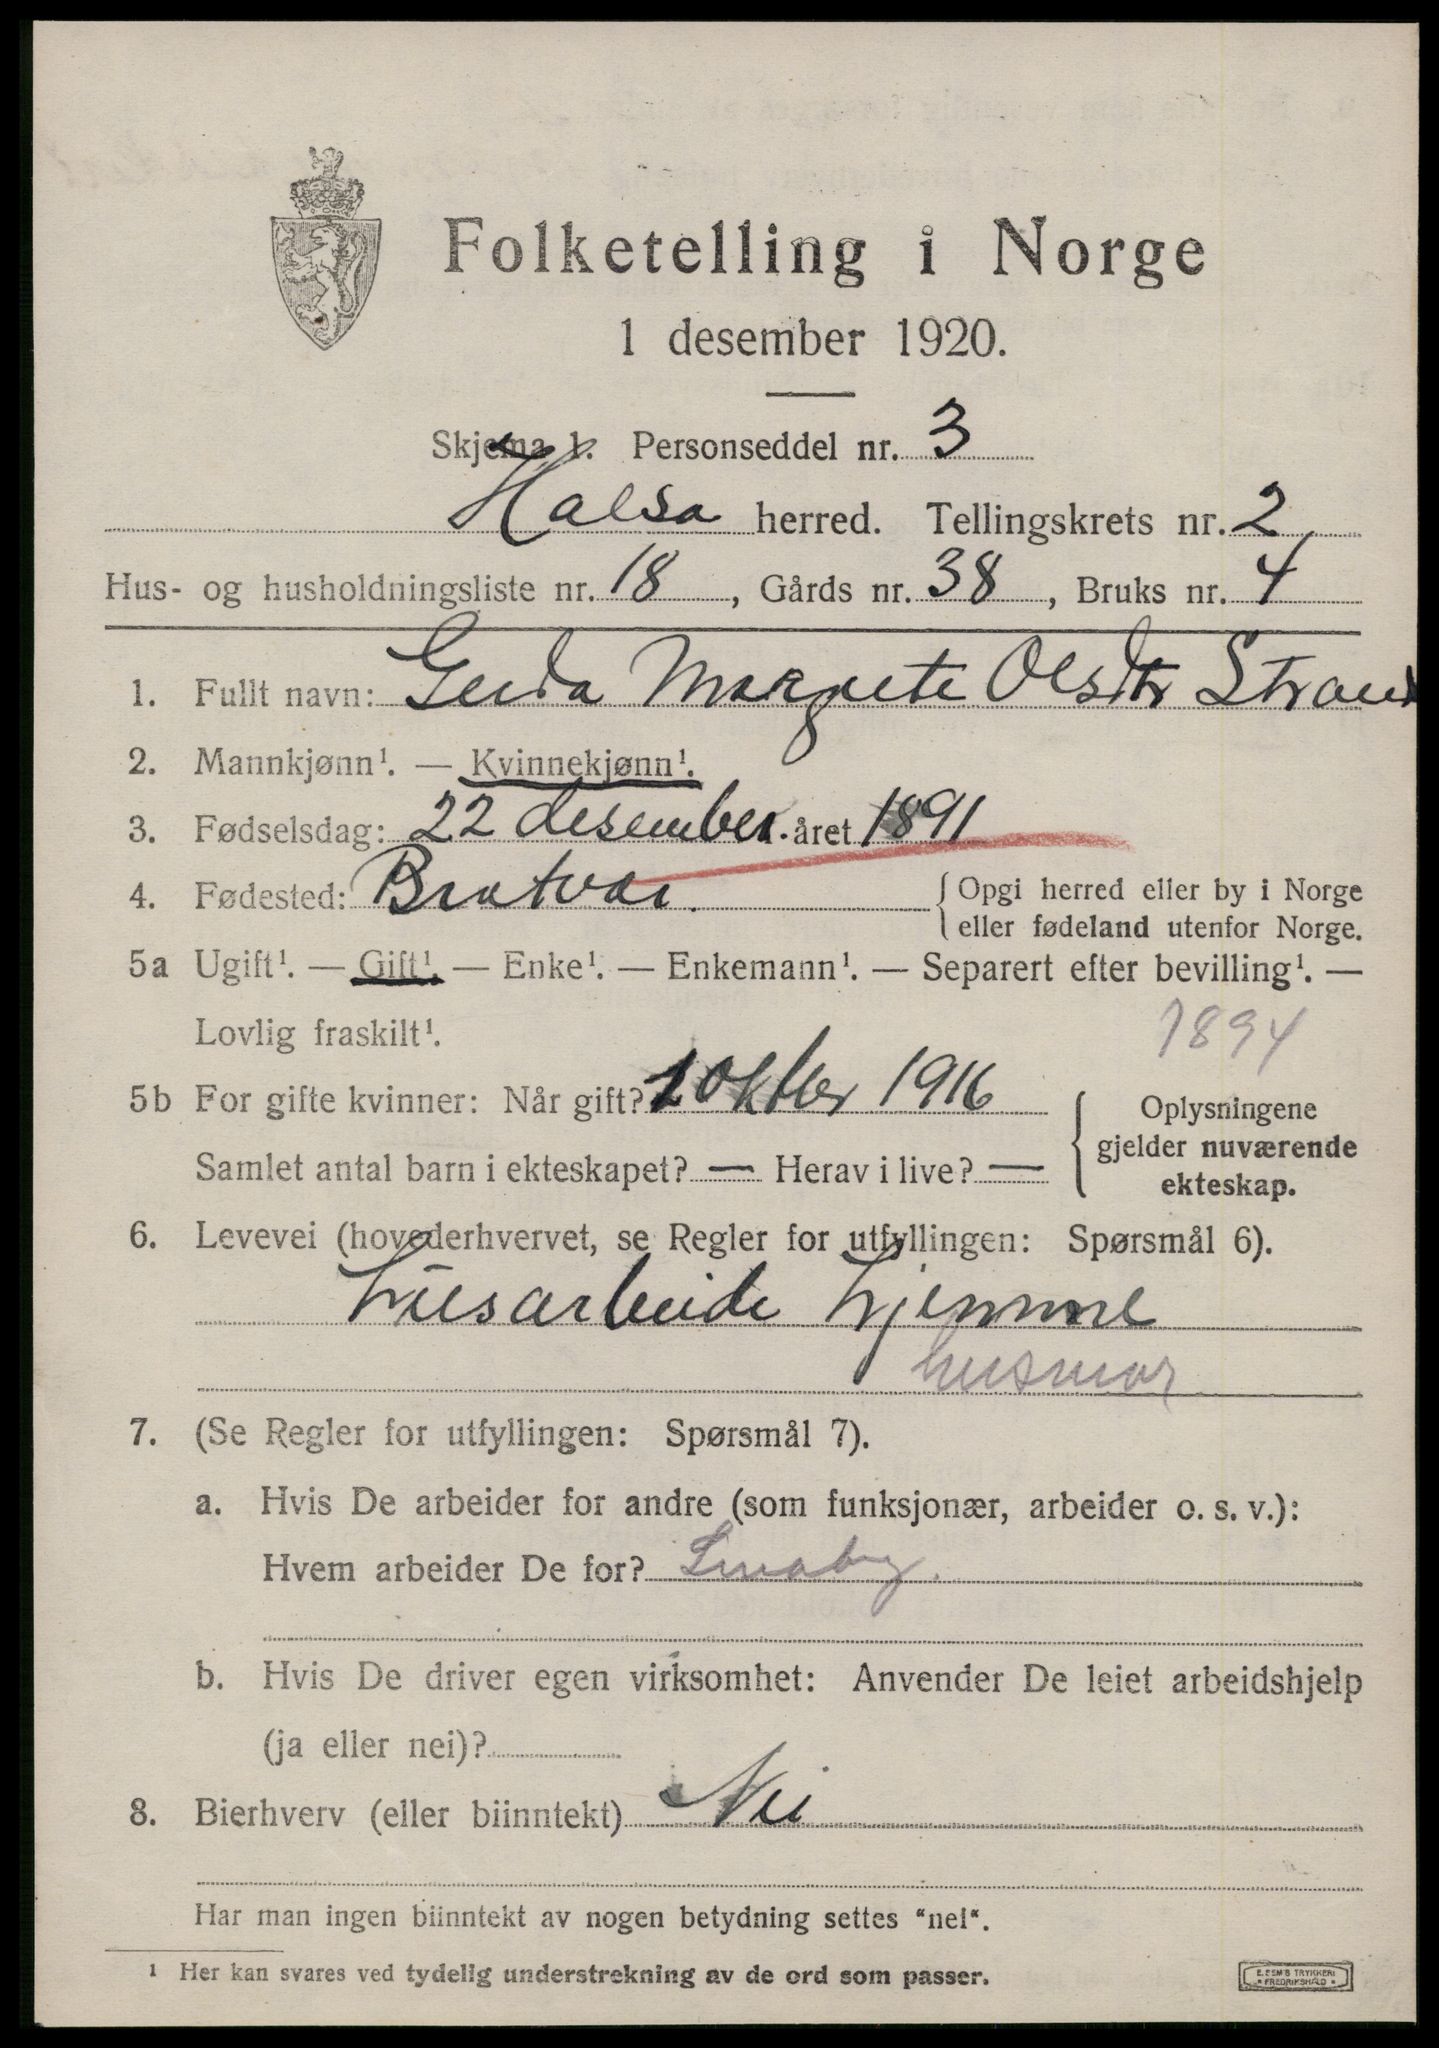 Folketelling i Norge
1 desember 1920.
Skjema 1. Personseddel nr. 3
Halsa herred. Tellingskrets nr. 2
Hus- og husholdningsliste nr. 18, Gårds nr. 38, Bruks nr. 4
1. Fullt navn: Gerda Margrete Olsdtr Strand
2. Mannkjønn¹. — Kvinnekjønn¹.
3. Fødselsdag: 22 desember. året 1891
4. Fødested: Bratvær. { Opgi herred eller by i Norge
eller fødeland utenfor Norge.
5a Ugift¹. — Gift¹. — Enke¹. — Enkemann¹. — Separert efter bevilling¹. —
Lovlig fraskilt¹. 1894
5b For gifte kvinner: Når gift? 1 oktber 1916
Samlet antal barn i ekteskapet? — Herav i live? —
{ Oplysningene
gjelder nuværende
ekteskap.
6. Levevei (hovederhvervet, se Regler for utfyllingen: Spørsmål 6).
Husarbeide hjemme
husmor
7. (Se Regler for utfyllingen: Spørsmål 7).
a. Hvis De arbeider for andre (som funksjonær, arbeider o. s. v.):
Hvem arbeider De for? Småbr.
b. Hvis De driver egen virksomhet: Anvender De leiet arbeidshjelp
(ja eller nei)?
8. Bierhverv (eller biinntekt) Nei
Har man ingen biinntekt av nogen betydning settes "nei".
¹ Her kan svares ved tydelig understrekning av de ord som passer.
E. SEM'S TRYKKERI
• FREDRIKSHALD •